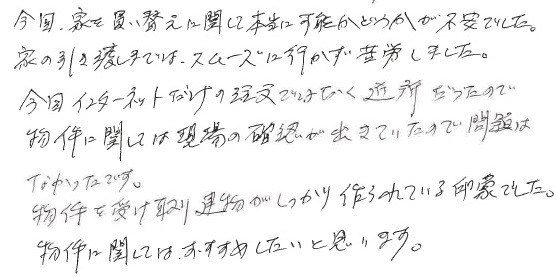 今回、家を買い替えに関して本当に可能かどうかが不安でした。
家の引き渡しまでは、スムーズに行かず苦労しました。
今回インターネットだけの注文ではなく近所だったので
物件に関しては現場の確認が出来ていたので問題は
なかったです。
物件を受け取り建物がしっかり作られている印象でした。
物件に関しては、おすすめしたいと思います。